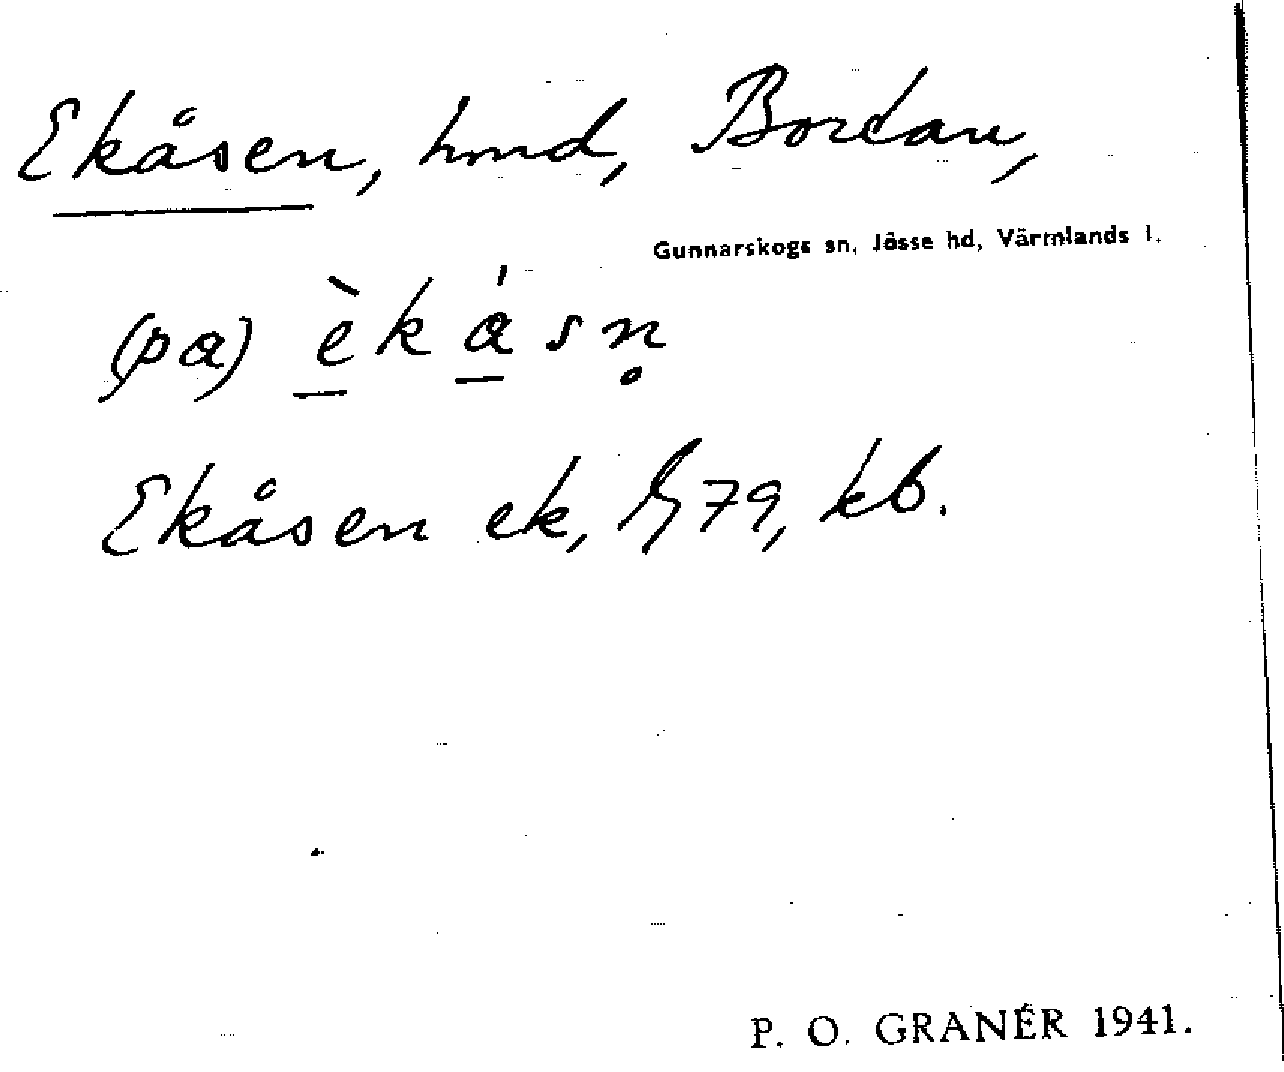 Ekåsen, hmd, Bordan,
Gunnarskogs sn, Jösse hd, Värmlands l.
(pa) èkásn̥
Ekåsen ek, G79, kb.
P. O. GRANÉR 1941.